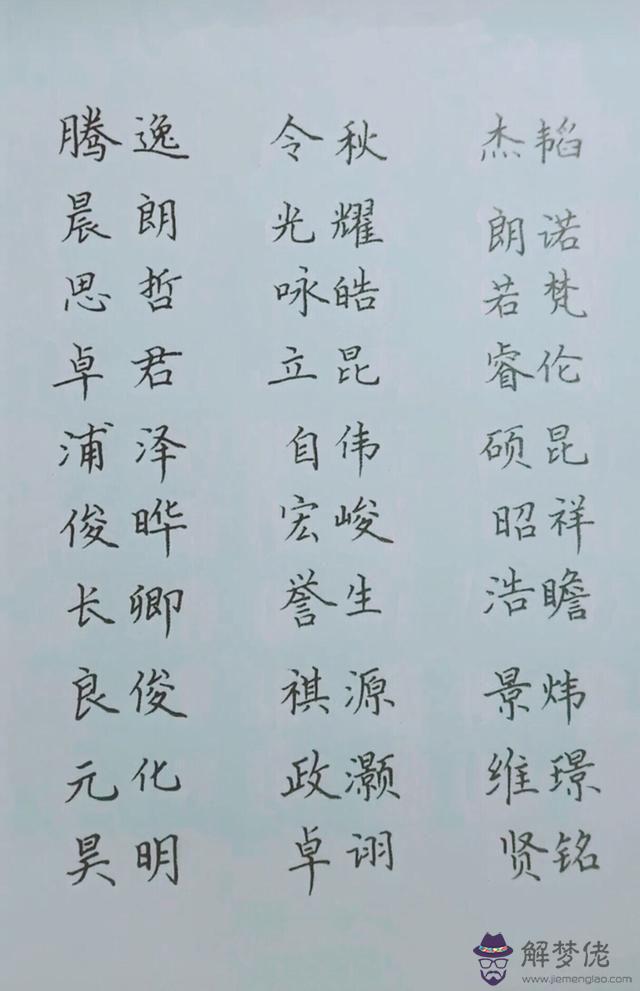 腾逸 令秋 杰韬
晨朗 光耀 朗诺
思哲 咏皓 若梵
卓君 立昆 睿伦
浦泽 自伟 硕昆
俊晔 宏峻 昭祥
长卿 誉生 浩瞻
良俊 祺源 景炜
元化 政灏 维璟
昊明 卓诩 贤铭
解梦佬
www.jiemenglao.com